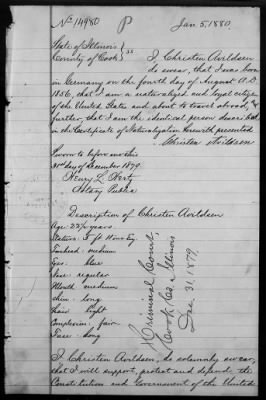 No 14980 P Jan. 5, 1880.
State of Illinois }
County of Cook } ss
I, Christen Avildsen
do swear, that I was born
in Germany on the fourth day of August A.D.
1856, that I am a naturalized and loyal citizen
of the United States and about to travel abroad, &
further, that I am the identical person described
in the Certificate of Naturalization herewith presented
Christen Avildsen
Sworn to before me this
31st day of December 1879
Henry L. Hertz
Notary Public
Description of Christen Avildsen
Age: years
Stature: 5 ft
Forehead: medium
Eyes: blue
Nose: regular
Mouth: medium
Chin: long
Hair: light
Complexion: fair
Face: long
Criminal Court,
Cook Co. Illinois
Dec. 31, 1879.
I, Christen Avildsen, do solemnly swear,
that I will support, protect and defend the
Constitution and Government of the United